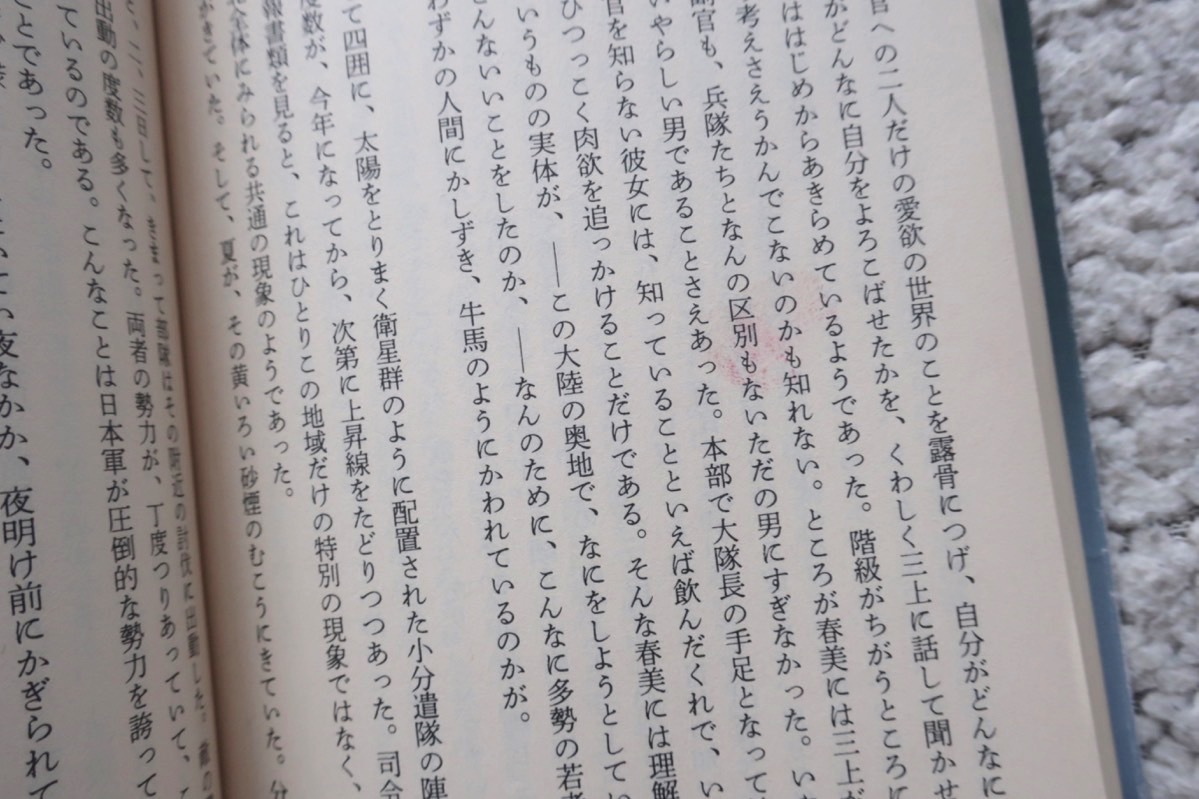 官への二人だけの愛欲の世界のことを露骨につげ、自分がどんなに
がどんなに自分をよろこばせたかを、くわしく三上に話して聞かせ
はじめからあきらめているようであった。階級がちがうところに
考えさえうかんでこないのかも知れない。ところが春美には三上が
副官も、兵隊たちとなんの区別もないただの男にすぎなかった。いま
いやらしい男であることさえあった。本部で大隊長の手足となって
官を知らない彼女には、知っていることといえば飲んだくれで、い
ひつっこく肉欲を追っかけることだけである。そんな春美には理解
いうものの実体が、――この大陸の奥地で、なにをしようとしてい
さんないいことをしたのか、――なんのために、こんなに多勢の若者
わずかの人間にかしずき、牛馬のようにかわれているのかが。
て四囲に、太陽をとりまく衛星群のように配置された小分遣隊の陣
度数が、今年になってから、次第に上昇線をたどりつつあった。司令
報書類を見ると、これはひとりこの地域だけの特別の現象ではなく、
全体にみられる共通の現象のようであった。
がきていた。そして、夏が、その黄いろい砂煙のむこうにきていた。分
二、三日して、きまって部隊はその附近の討伐に出動した。敵の
出動の度数も多くなった。両者の勢力が、丁度つりあっていて、こ
ているのである。こんなことは日本軍が圧倒的な勢力を誇って
とであった。
夜なか、夜明け前にかぎられて